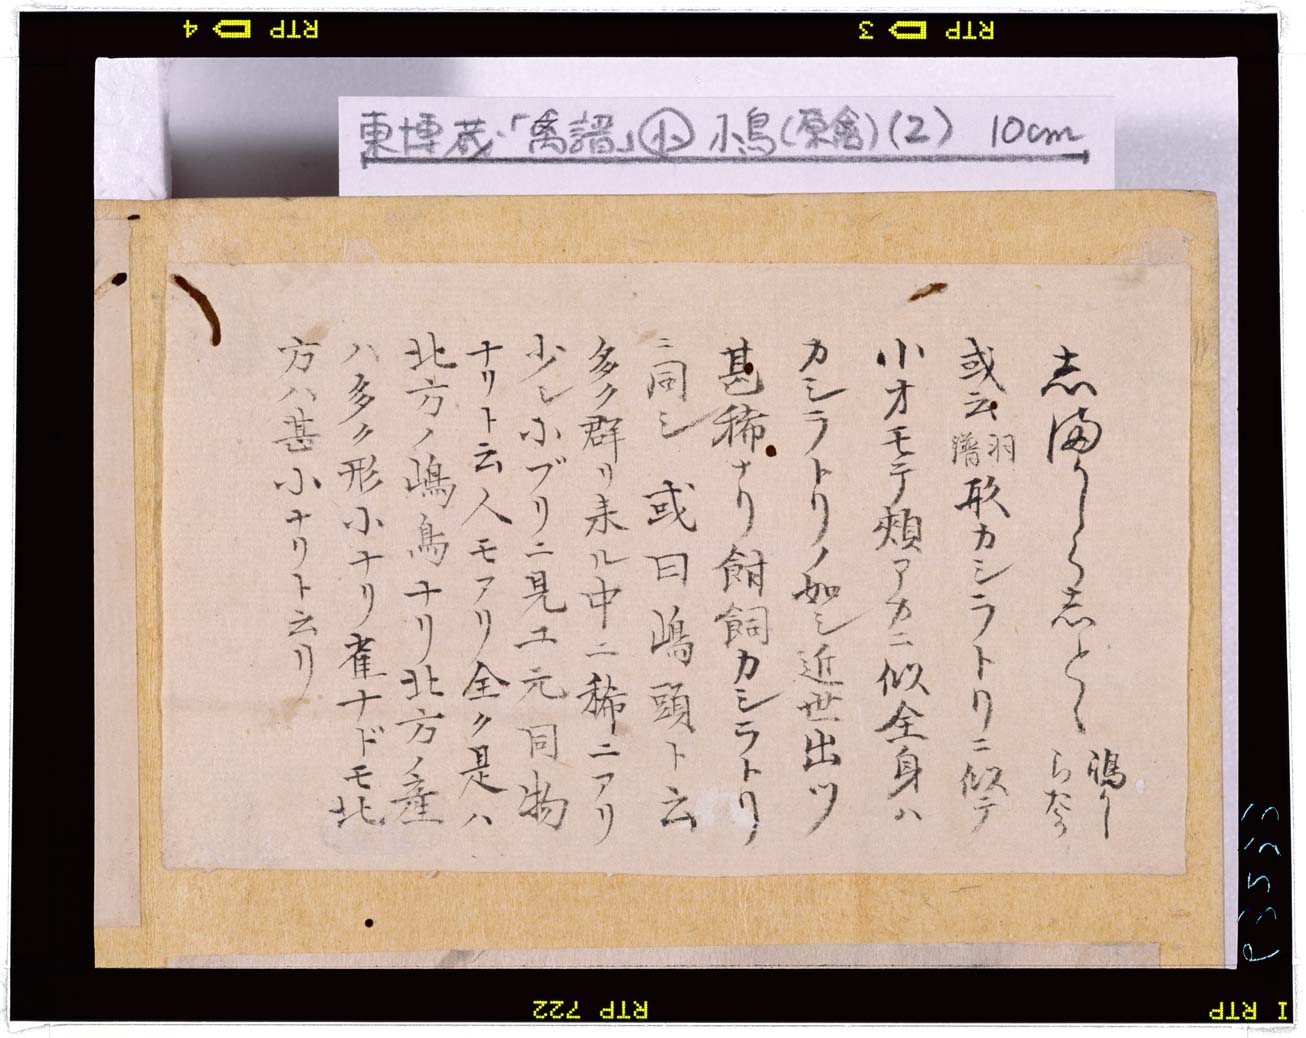 4 RTP 3 RTP
東博蔵「禽譜」㊙小鳥(原禽)(2) 10cm
志満可しら志とゝ
鴲可しら奈可
或云羽譜形カシラトリニ似テ
小オモテ頬アカニ似全身ハ
カシラトリノ如シ近世出ツ
甚稀ナリ餌飼カシラトリ
ニ同シ 或曰嶋頭ト云
多ク群リ来ル中ニ稀ニアリ
少シ小ブリニ見ユ元同物
ナリト云人モアリ全ク是ハ
北方ノ嶋鳥ナリ北方ノ産
ハ多ク形小ナリ雀ナドモ北
方ハ甚小ナリト云リ
RTP 722
RTP I